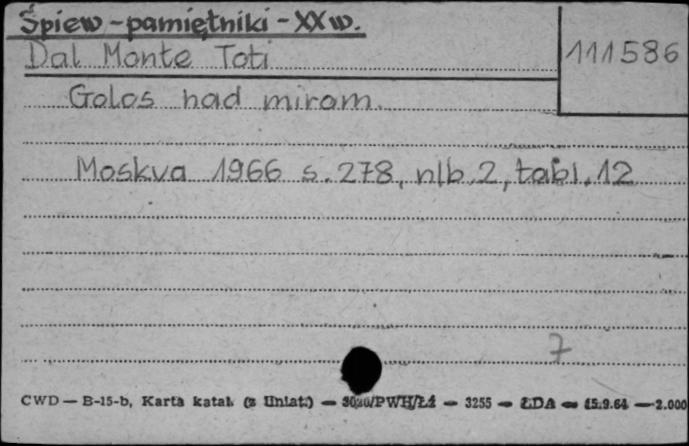 Śpiew - pamiętniki - XX w.
Dal Monte Toti
111586
Golos nad mirom.
Moskva 1966 s. 278, nlb. 2, tabl. 12
7
CWD — B-15-b, Karta katal. (z liniat.) — /PWH/Łź — 3255 — ŁDA — 15.9.64 — 2.000